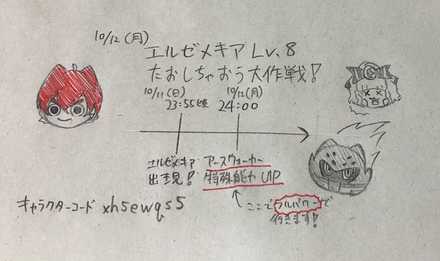 10/12 (月)
エルゼメキア Lv.8
たおしちゃおう大作戦！
10/11(日)
23:55頃
10/12(月)
24:00
エルゼメキア
出現！
アースウォーカー
特殊能力UP
ここでフルパワーで
行きます！
キャラクターコード xh5ewqs5